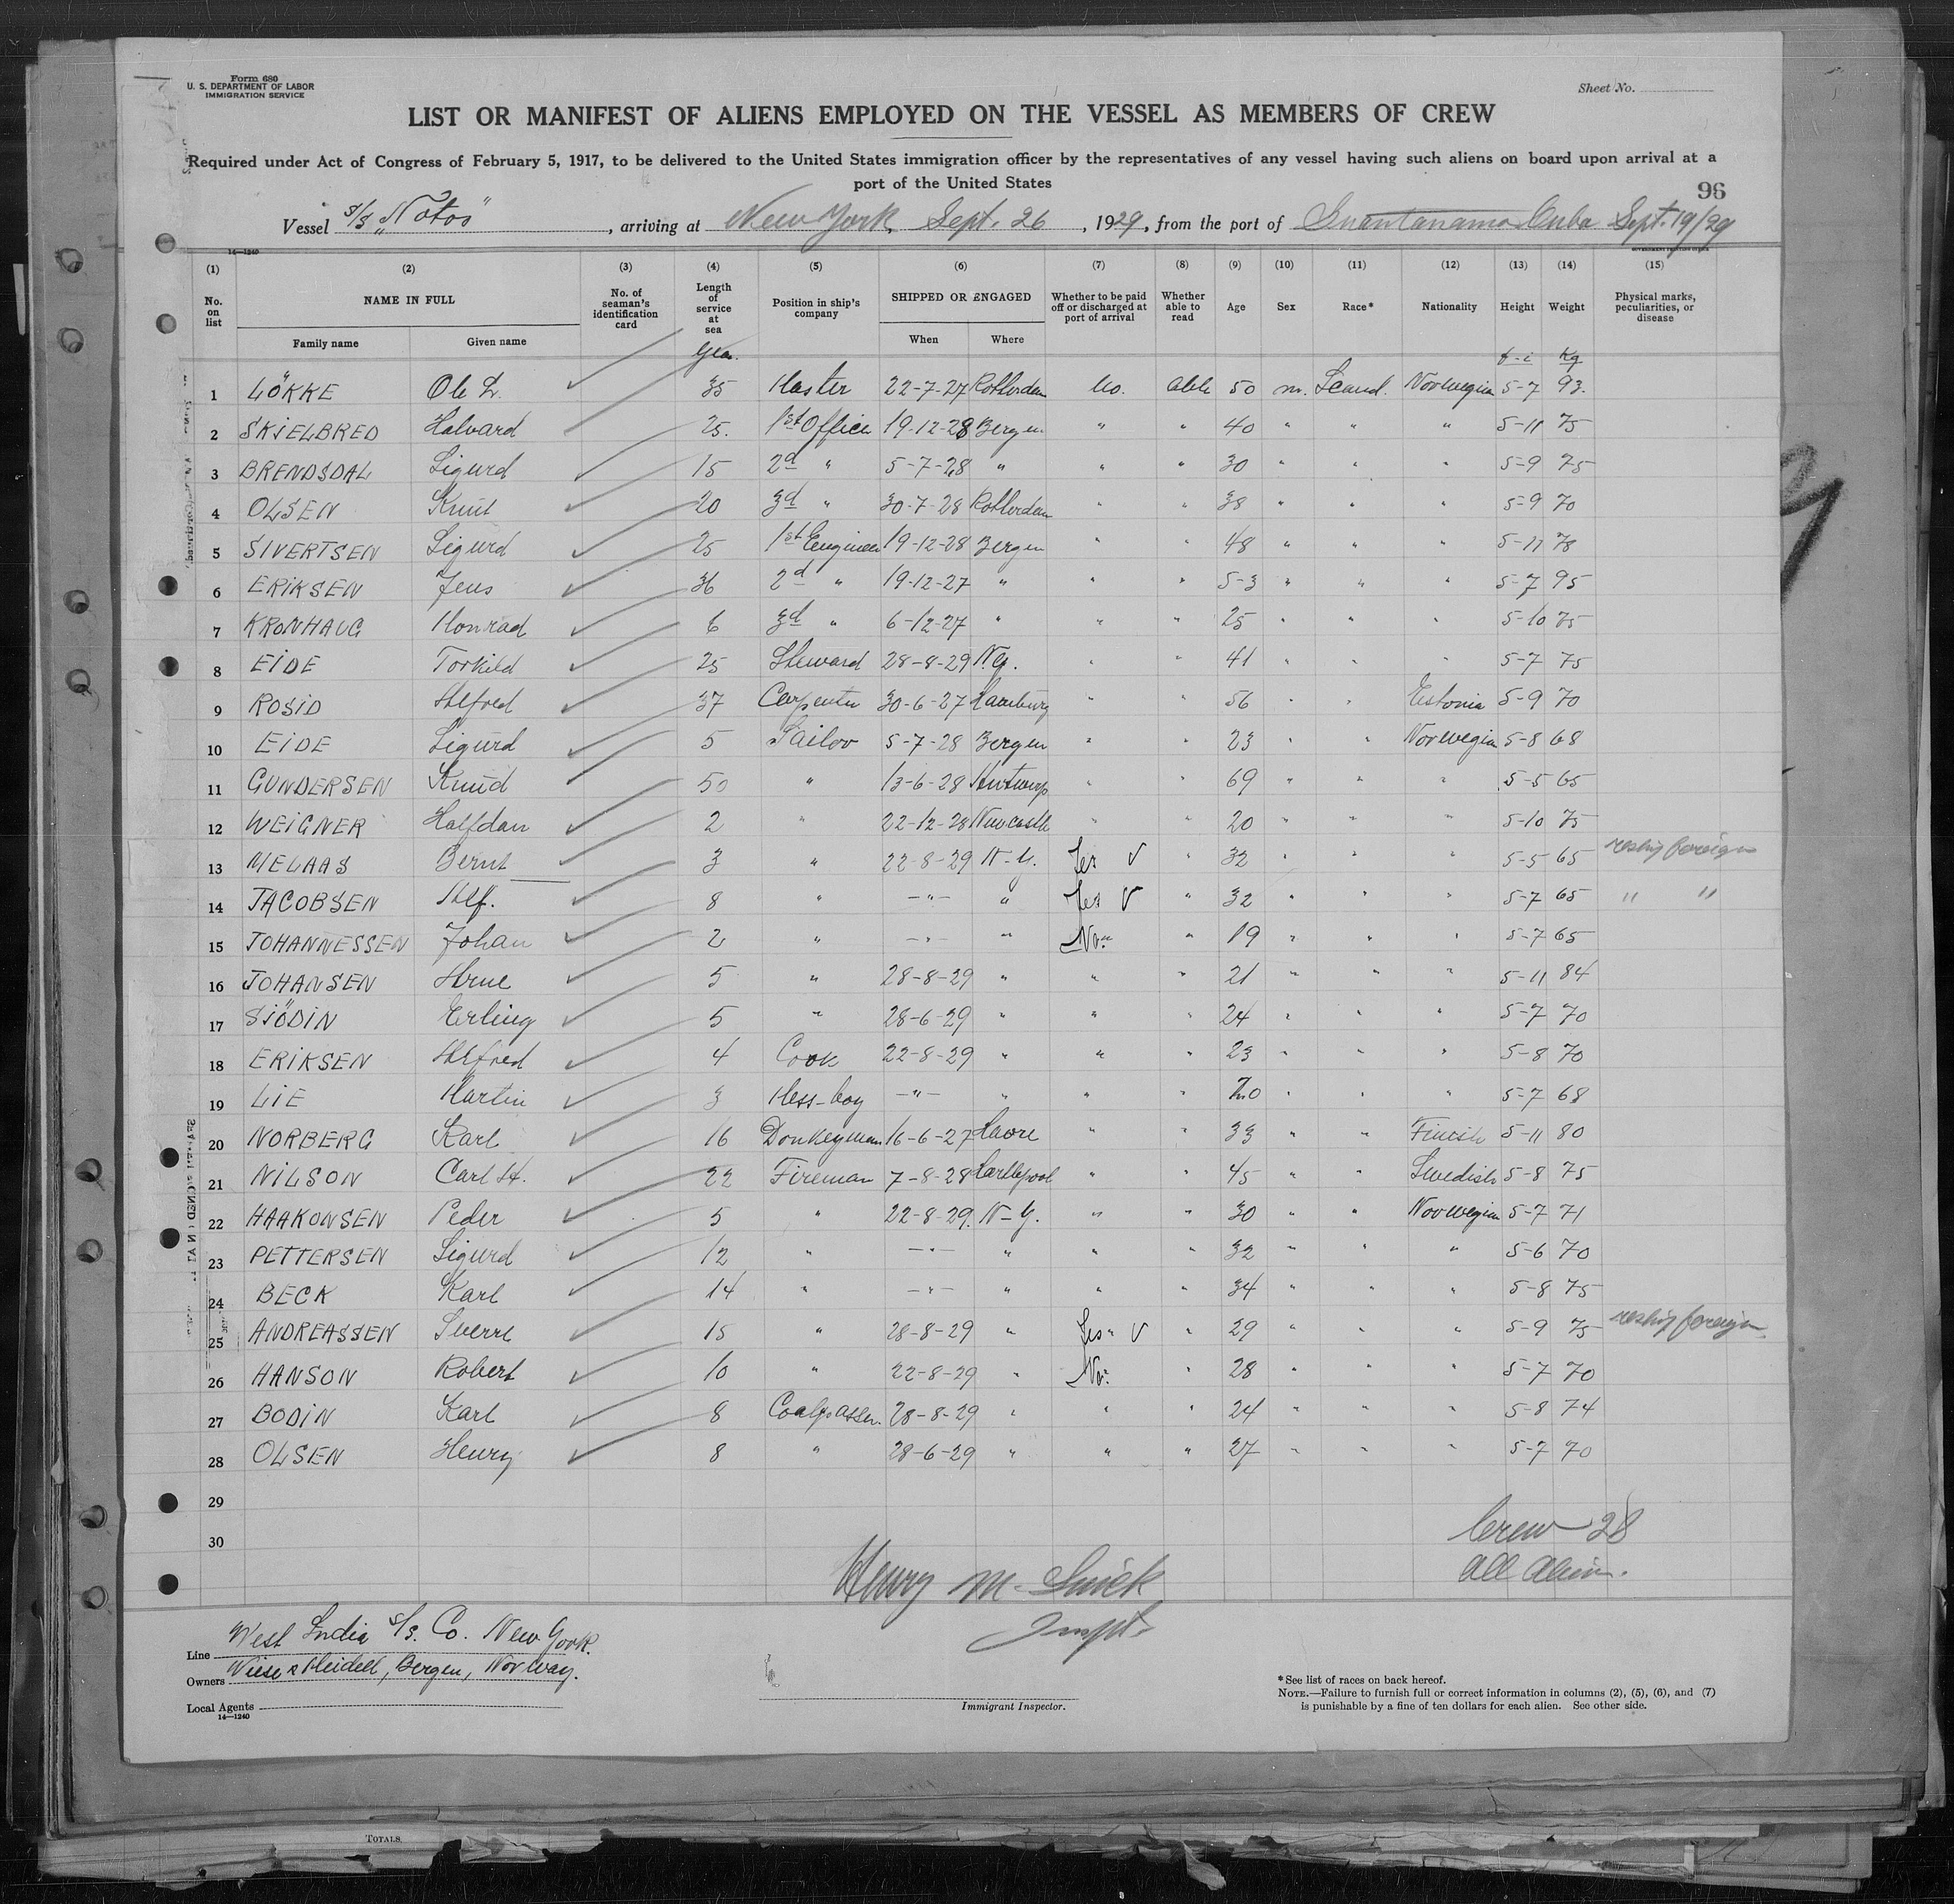 Form 680
U. S. DEPARTMENT OF LABOR
IMMIGRATION SERVICE
Sheet No.
LIST OR MANIFEST OF ALIENS EMPLOYED ON THE VESSEL AS MEMBERS OF CREW
Required under Act of Congress of February 5, 1917, to be delivered to the United States immigration officer by the representatives of any vessel having such aliens on board upon arrival at a
port of the United States
96
Vessel S/S „Notos", arriving at New York, Sept. 26, 1929, from the port of Guantanamo Cuba Sept. 19/29
14—1240
(1) (2) (3) (4) (5) (6) (7) (8) (9) (10) (11) (12) (13) (14) (15)
No. on list NAME IN FULL Family name Given name No. of seaman's identification card Length of service at sea Position in ship's company SHIPPED OR ENGAGED When Where Whether to be paid off or discharged at port of arrival Whether able to read Age Sex Race* Nationality Height Weight Physical marks, peculiarities, or disease
f-i Kg
1 LÖKKE Ole L. 35 Master 22-7-27 Rotterdam No. able 50 m. Scand. Norwegian 5-7 93.
2 SKJELBRED Halvard 25. 1st Officer 19-12-28 Bergen " " 40 " " " 5-11 75
3 BRENDSDAL Sigurd 15 2d " 5-7-28 " " " 30 " " " 5-9 75
4 OLSEN Knut 20 3d " 30-7-28 Rotterdam " " 38 " " " 5-9 70
5 SIVERTSEN Sigurd 25 1st Engineer 19-12-28 Bergen " " 48 " " " 5-11 78
6 ERIKSEN Jens 36 2d " 19-12-27 " " " 5-3 " " " 5-7 95
7 KRONHAUG Konrad 6 3d " 6-12-27 " " " 25 " " " 5-10 75
8 EIDE Torkild 25 Steward 28-8-29 N.y. " " 41 " " " 5-7 75
9 ROSID Alfred 37 Carpenter 30-6-27 Hamburg " " 56 " " Estonia 5-9 70
10 EIDE Sigurd 5 Sailor 5-7-28 Bergen " " 23 " " Norwegian 5-8 68
11 GUNDERSEN Knud 50 " 13-6-28 Antwerp " 69 " " " 5-5 65
12 WEIGNER Halfdan 2 " 22-12-28 Newcastle " " 20 " " " 5-10 75
13 MELAAS Bernt 3 " 22-8-29 N-Y. Yes V " 32 " " " 5-5 65 reship foreign
14 JACOBSEN Alf. 8 " —"— " Yes V " 32 " " " 5-7 65 " "
15 JOHANNESSEN Johan 2 " —"— " No. " 19 " " " 5-7 65
16 JOHANSEN Arne 5 " 28-8-29 " " " 21 " " " 5-11 84
17 SJÖDIN Erling 5 " 28-6-29 " " " 24 " " " 5-7 70
18 ERIKSEN Alfred 4 Cook 22-8-29 " " " 23 " " " 5-8 70
19 LIE Martin 3 Mess-boy —"— " " " 20 " " " 5-7 68
20 NORBERG Karl 16 Donkeyman 16-6-27 Havre " " 33 " " Finish 5-11 80
21 NILSON Carl H. 22 Fireman 7-8-28 Hartlepool " 45 " " Swedish 5-8 75
22 HAAKONSEN Peder 5 " 22-8-29. N-Y. " " 30 " " Norwegian 5-7 71
23 PETTERSEN Sigurd 12 " —"— " " " 32 " " " 5-6 70
24 BECK Karl 14 " —"— " " " 34 " " " 5-8 75
25 ANDREASSEN Sverre 15 " 28-8-29 " Yes V " 29 " " " 5-9 75 reship foreign
26 HANSON Robert 10 " 22-8-29 " No. " 28 " " " 5-7 70
27 BODIN Karl 8 Coalpasser. 28-8-29 " " " 24 " " " 5-8 74
28 OLSEN Henry 8 " 28-6-29 " " " 27 " " " 5-7 70
29
30
Crew 28
All Alien.
Henry M. Smick
Inspt.
Line West India S/S. Co. New York.
Owners Wiese & Meidell, Bergen, Norway.
Local Agents
14—1240
Immigrant Inspector.
*See list of races on back hereof.
NOTE.—Failure to furnish full or correct information in columns (2), (5), (6), and (7)
is punishable by a fine of ten dollars for each alien. See other side.
TOTALS